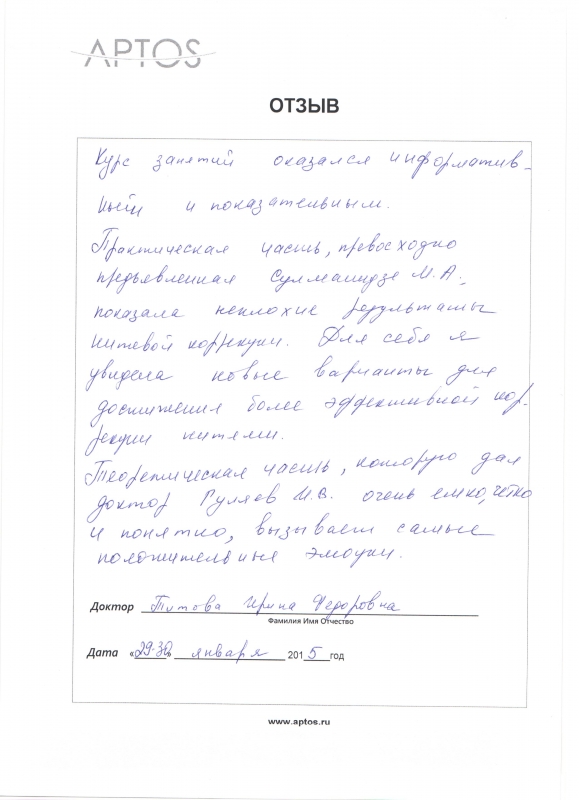 APTOS
ОТЗЫВ
Курс занятий оказался информатив-
ный и показательным.
Практическая часть, превосходно
предъявленная Сулманидзе М.А.,
показала неплохие результаты
нитевой коррекции. Для себя я
увидела новые варианты для
достижения более эффективной кор-
рекции нитями.
Теоретическая часть, которую дал
доктор Гуляев И.В. очень емко, четко
и понятно, вызывает самые
положительные эмоции.
Доктор Титова Ирина Федоровна
Фамилия Имя Отчество
Дата «29-30» января 2015 год
www.aptos.ru